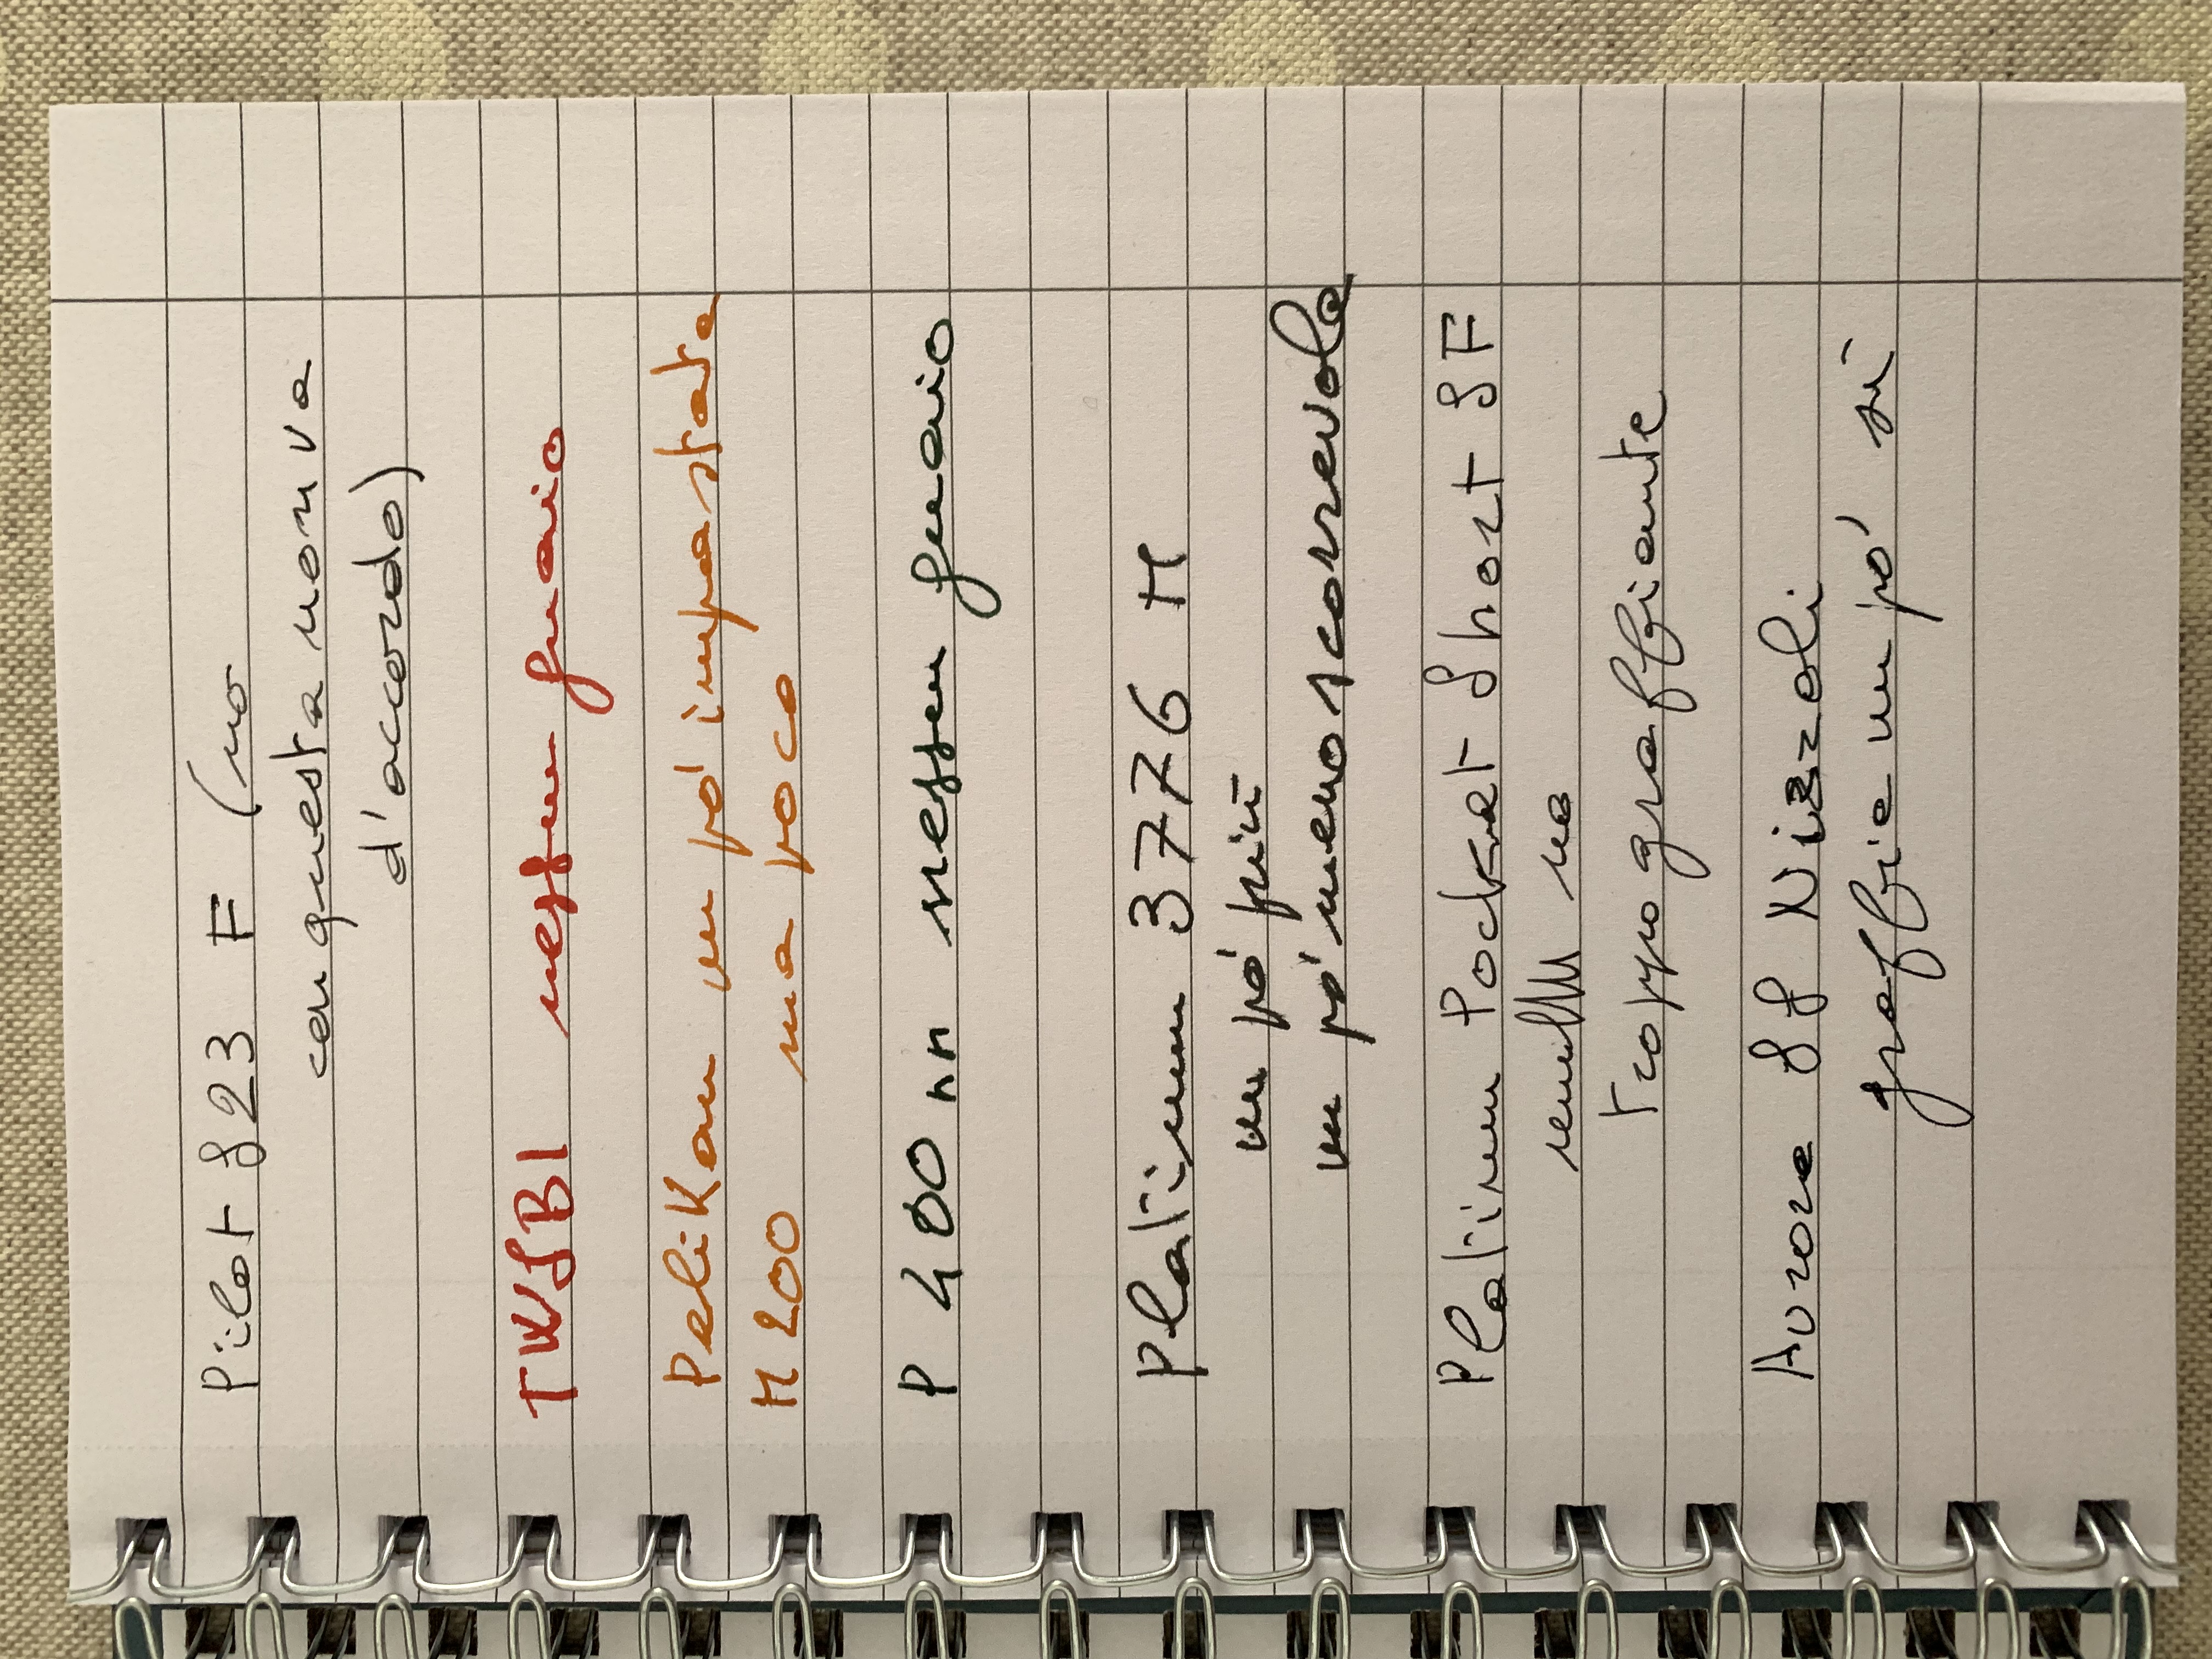 Pilot 823 F (no
con questa non va
d'accordo)
TWSBI nessun guaio
Pelikan un pò' impastata
M200 ma poco
P 400 nn nessun guaio
Platinum 3776 M
un pò' più
un pò' meno scorrevole
Platinum Pocket Short SF
no
troppo graffiante
Aurora 88 Nizzoli
graffia un pò' sì